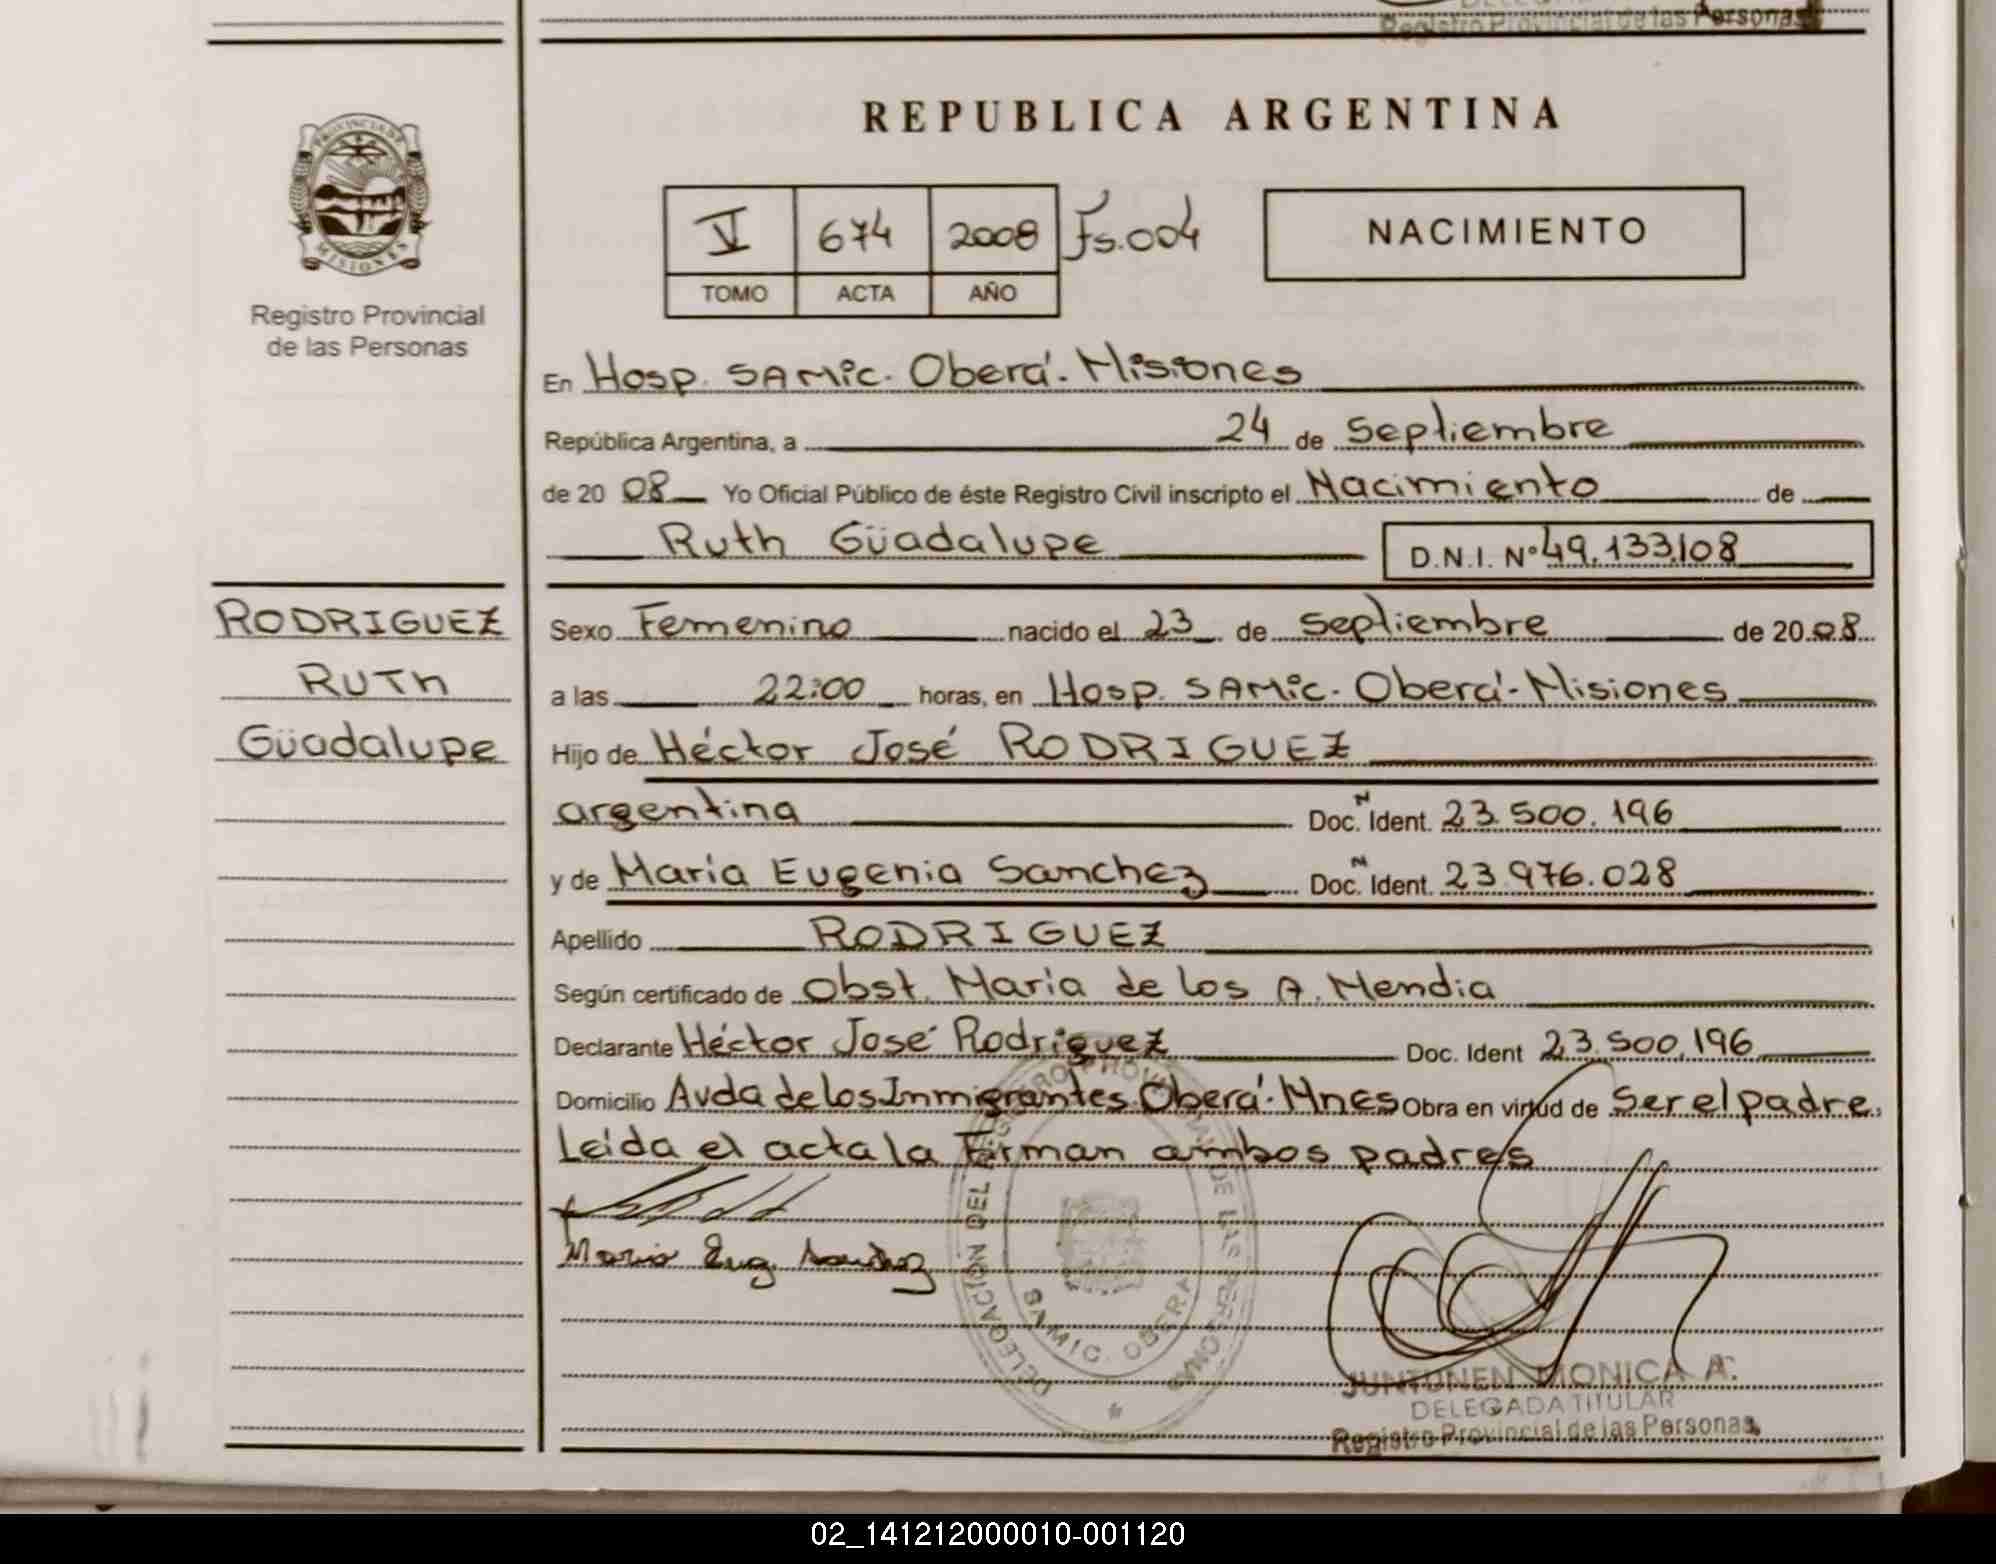 Registro Provincial de las Personas
REPUBLICA ARGENTINA
PROVINCIA DE
MISIONES
Registro Provincial
de las Personas
V 674 2008 Fs.004
TOMO ACTA AÑO
NACIMIENTO
En Hosp. SAMic. Oberá. Misiones
República Argentina, a 24 de Septiembre
de 20 08 Yo Oficial Público de éste Registro Civil inscripto el Nacimiento de
Ruth Güadalupe D.N.I. Nº 49.133.108
RODRIGUEZ
RUTh
Güadalupe
Sexo Femenino nacido el 23 de Septiembre de 20.08
a las 22:00 horas, en Hosp. SAMic. Oberá-Misiones
Hijo de Héctor José RODRIGUEZ
argentina Doc. N Ident. 23.500.196
y de María Eugenia Sanchez Doc. N Ident. 23.976.028
Apellido RODRIGUEZ
Según certificado de Obst. María de los A. Mendia
Declarante Héctor José Rodriguez Doc. Ident 23.500.196
Domicilio Avda de los Inmigrantes. Oberá. Mnes Obra en virtud de Ser el padre.
Leída el acta la Firman ambos padres
Maria Eug. Sanchez
DELEGACION DEL REGISTRO PROVINCIAL DE LAS PERSONAS
SAMIC. OBERA
JUNTUNEN MONICA A.
DELEGADA TITULAR
Registro Provincial de las Personas
02_141212000010-001120